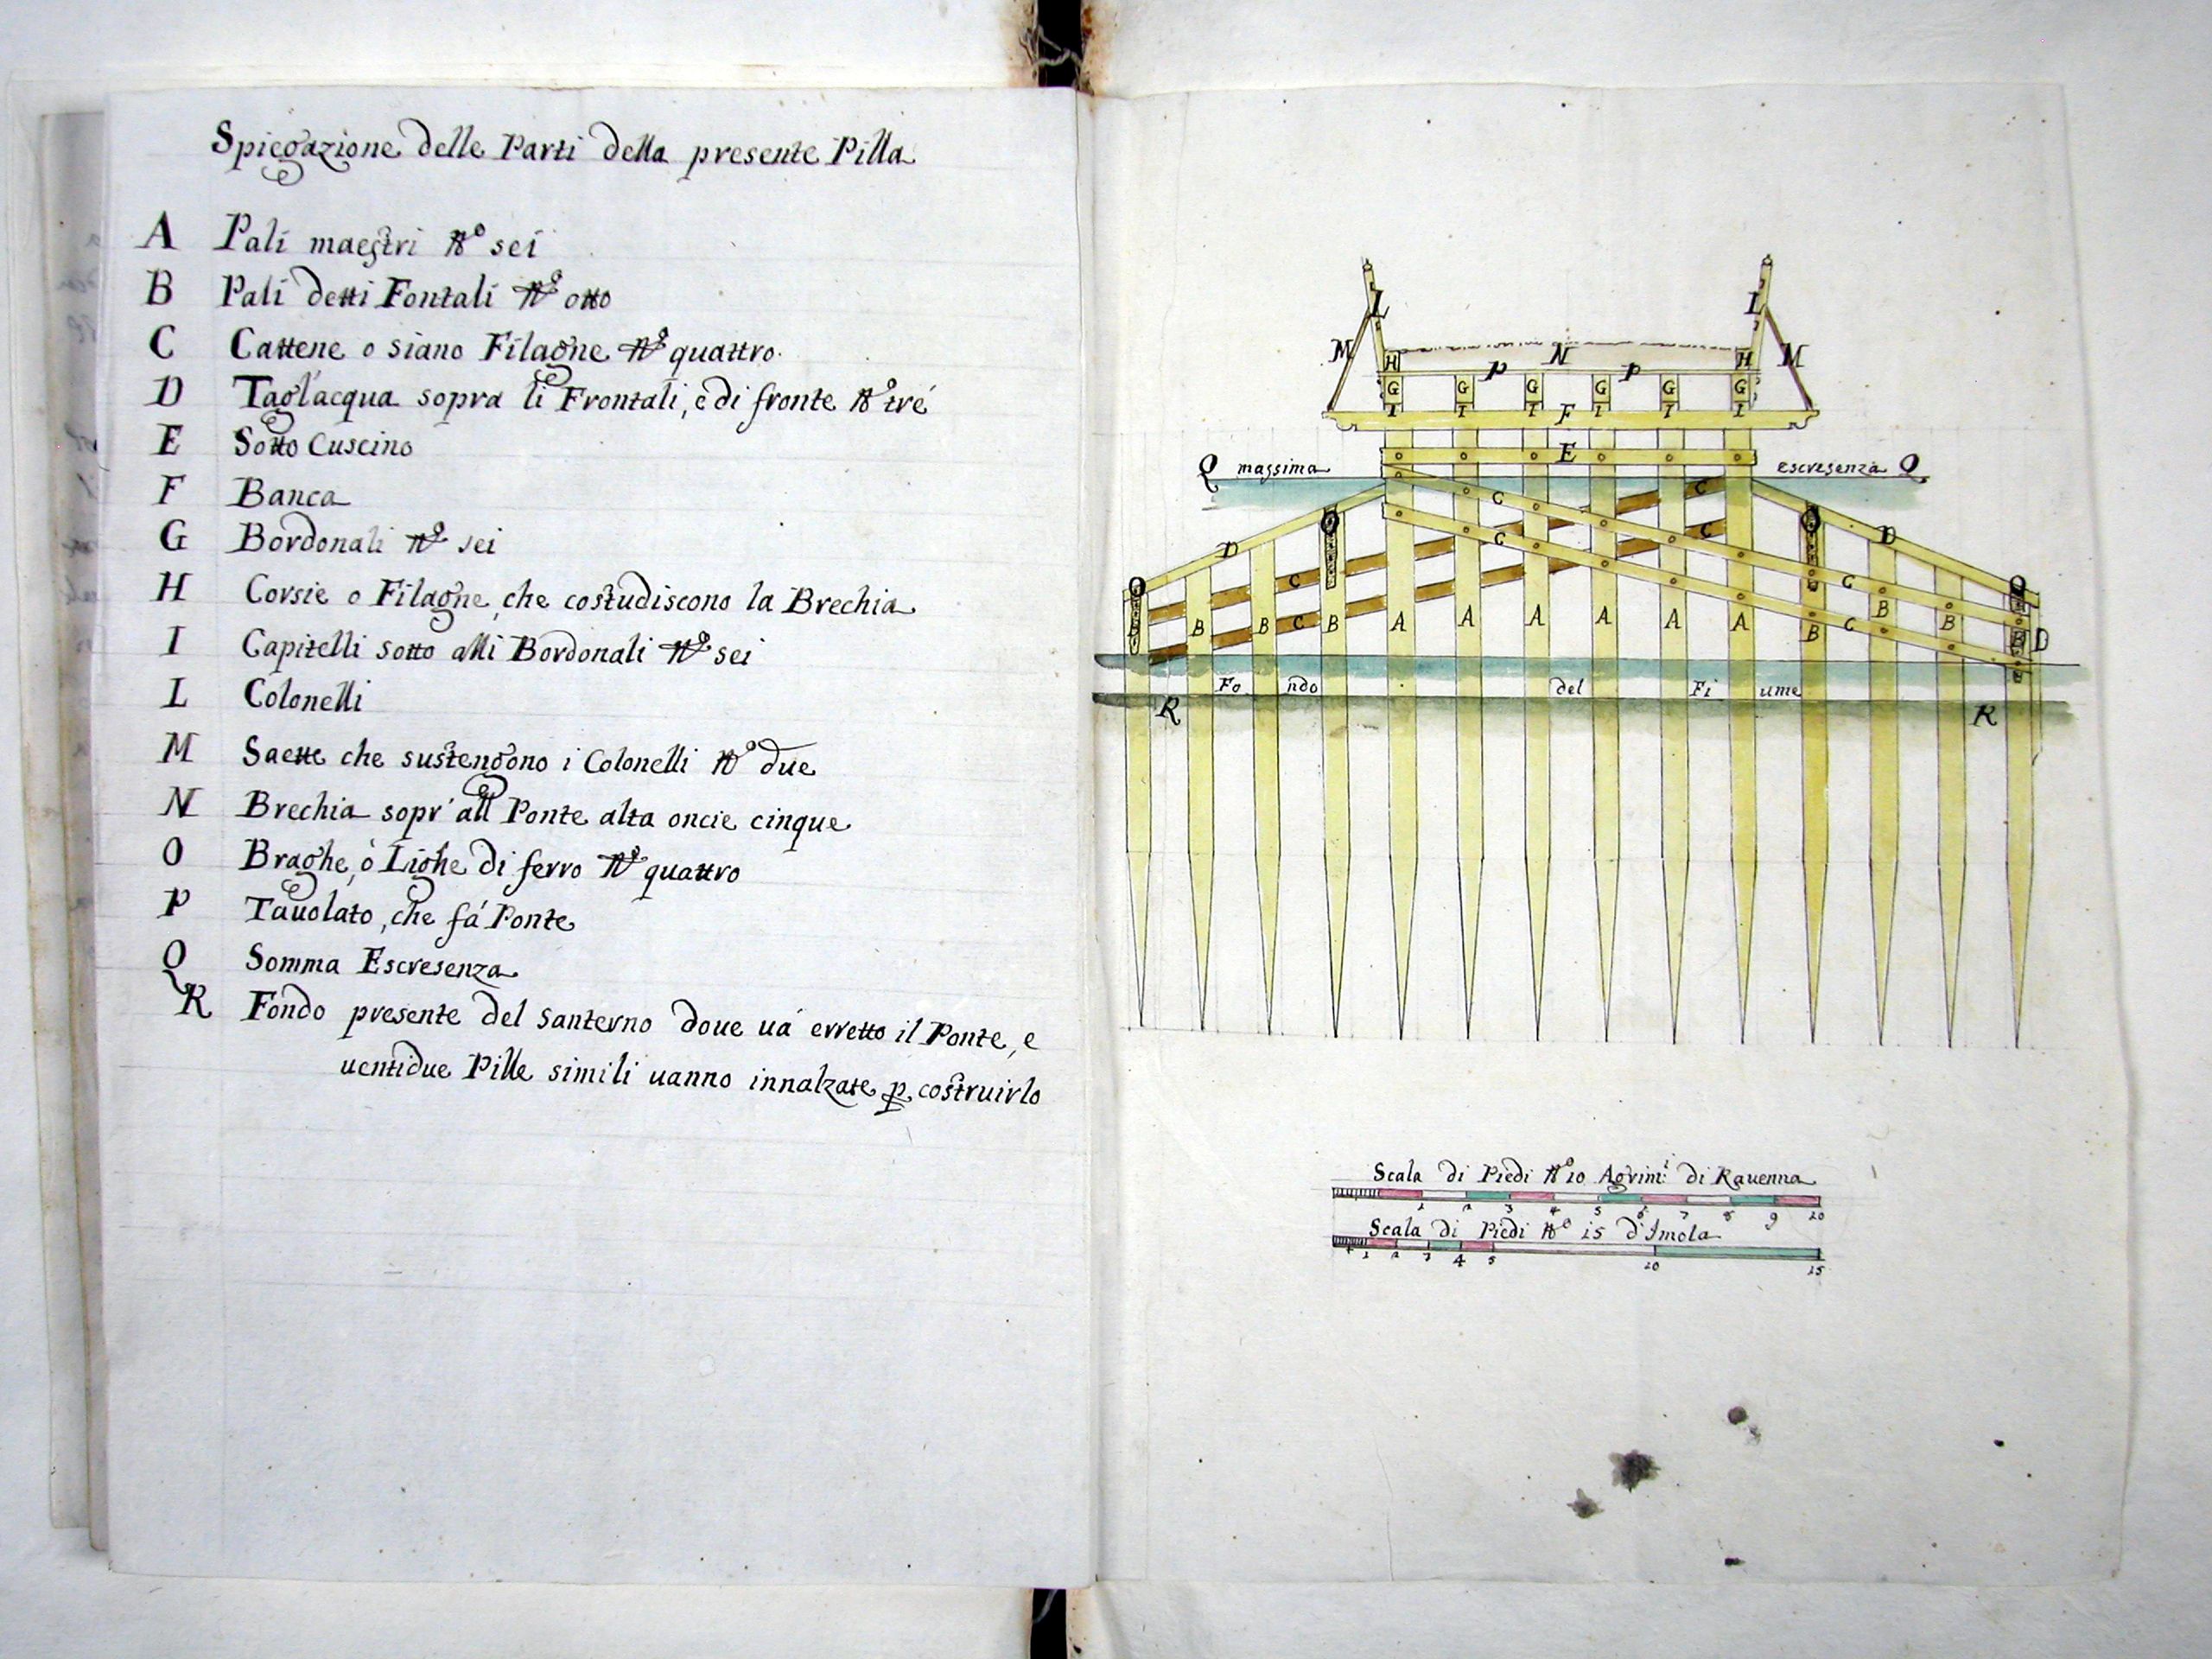 Spiegazione delle Parti della presente Pilla
A Pali maestri N.º sei
B Pali detti Fontali N.º otto
C Cattene o siano Filagne N.º quattro.
D Tagl'acqua sopra li Frontali, e di fronte N.º tré
E Sotto Cuscino
F Banca
G Bordonali N.º sei
H Corsie o Filagne, che costudiscono la Brechia
I Capitelli sotto alli Bordonali N.º sei
L Colonelli
M Saette che sustengono i Colonelli N.º due
N Brechia sopr' all Ponte alta oncie cinque
O Braghe, ò Lighe di ferro N.º quattro
P Tauolato, che fá Ponte
Q Somma Escresenza
R Fondo presente del Santerno doue uá erretto il Ponte, e
uentidue Pille simili uanno innalzate p. costruirlo
L L
M H P N P H M
G G G G G G
I I I F I I I
E
Q massima escresenza Q
C C
O O
D C C D
O C C O
B B B C B A A A A A A B C B B B D
Fo ndo del Fi ume
R R
Scala di Piedi N.º 10 Agrim.i di Rauenna
1 2 3 4 5 6 7 8 9 10
Scala di Piedi N.º 15 d'Imola
1 2 3 4 5 10 15